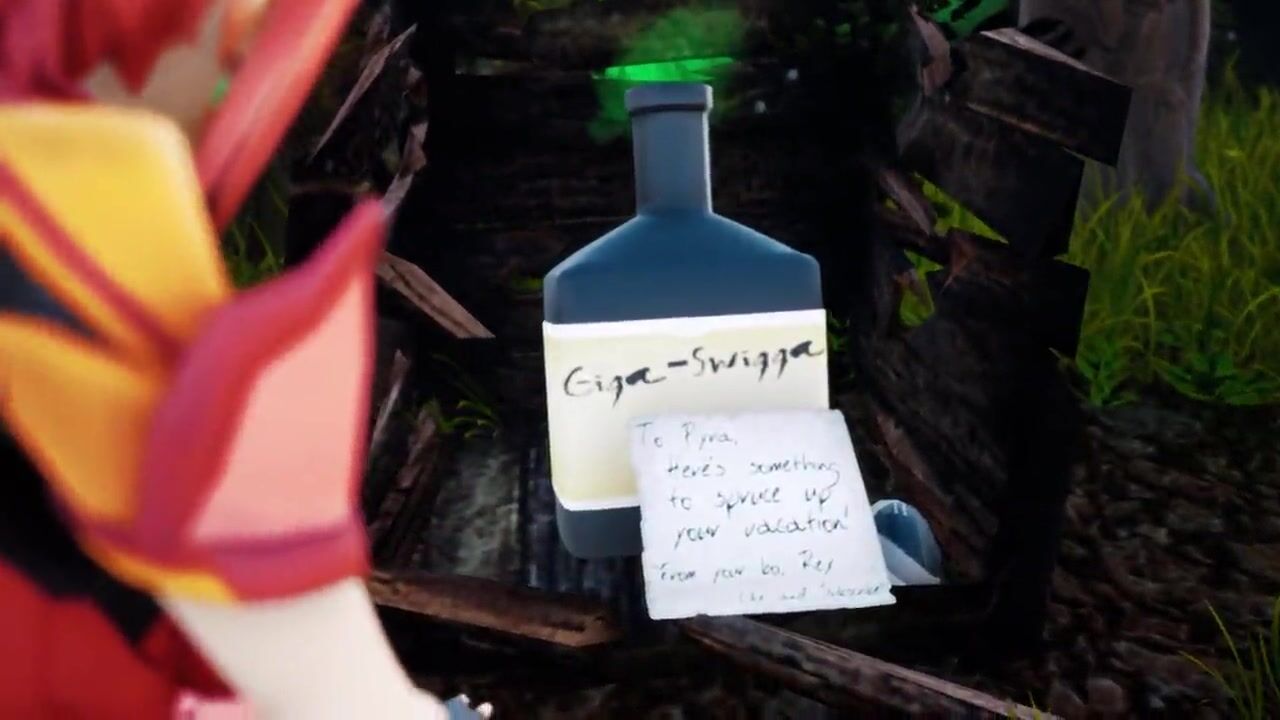 Giga-Swigga
To Pyra,
Here's something
to spruce up
your vacation!
From your bo, Rex
Like and Subscribe